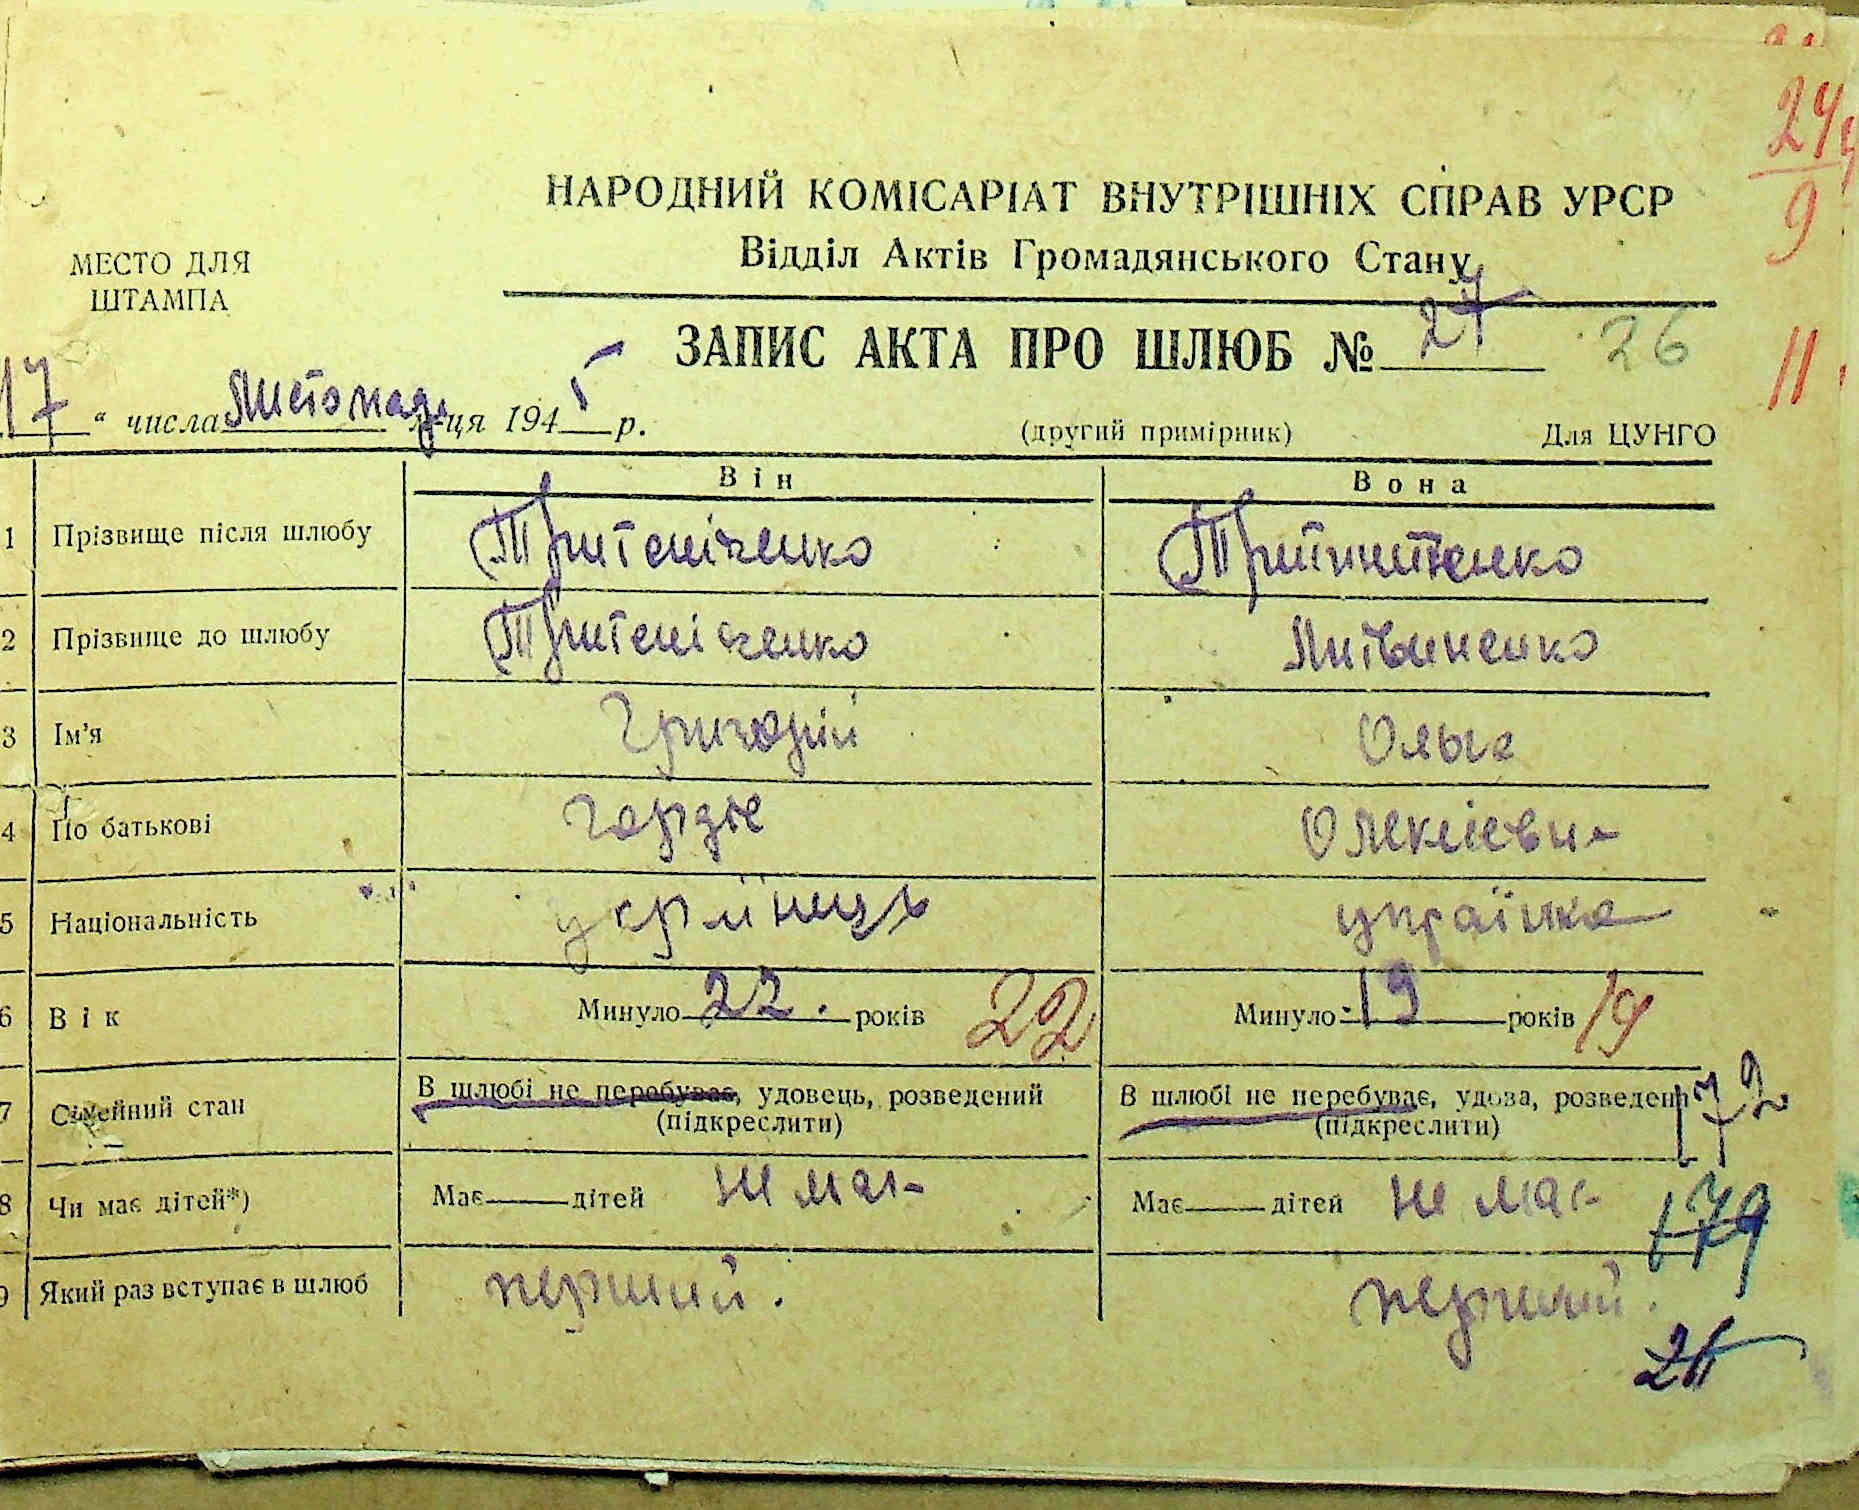 НАРОДНИЙ КОМІСАРІАТ ВНУТРІШНІХ СПРАВ УРСР
Відділ Актів Громадянського Стану
МЕСТО ДЛЯ
ШТАМПА
ЗАПИС АКТА ПРО ШЛЮБ № 27 26
17 “ числа листопад м-ця 1945 р.
(другий примірник) Для ЦУНГО
Він Вона
1 Прізвище після шлюбу
2 Прізвище до шлюбу Литвиненко
3 Ім’я Григорій Ольга
4 По батькові
5 Національність українка
6 Вік Минуло 22 років 22 Минуло 19 років 19
7 Сімейний стан В шлюбі не перебуває, удовець, розведений В шлюбі не перебуває, удова, розведен 172
(підкреслити) (підкреслити)
8 Чи має дітей*) Має дітей не має Має дітей не має 179
9 Який раз вступає в шлюб перший. перший.
24
9
11